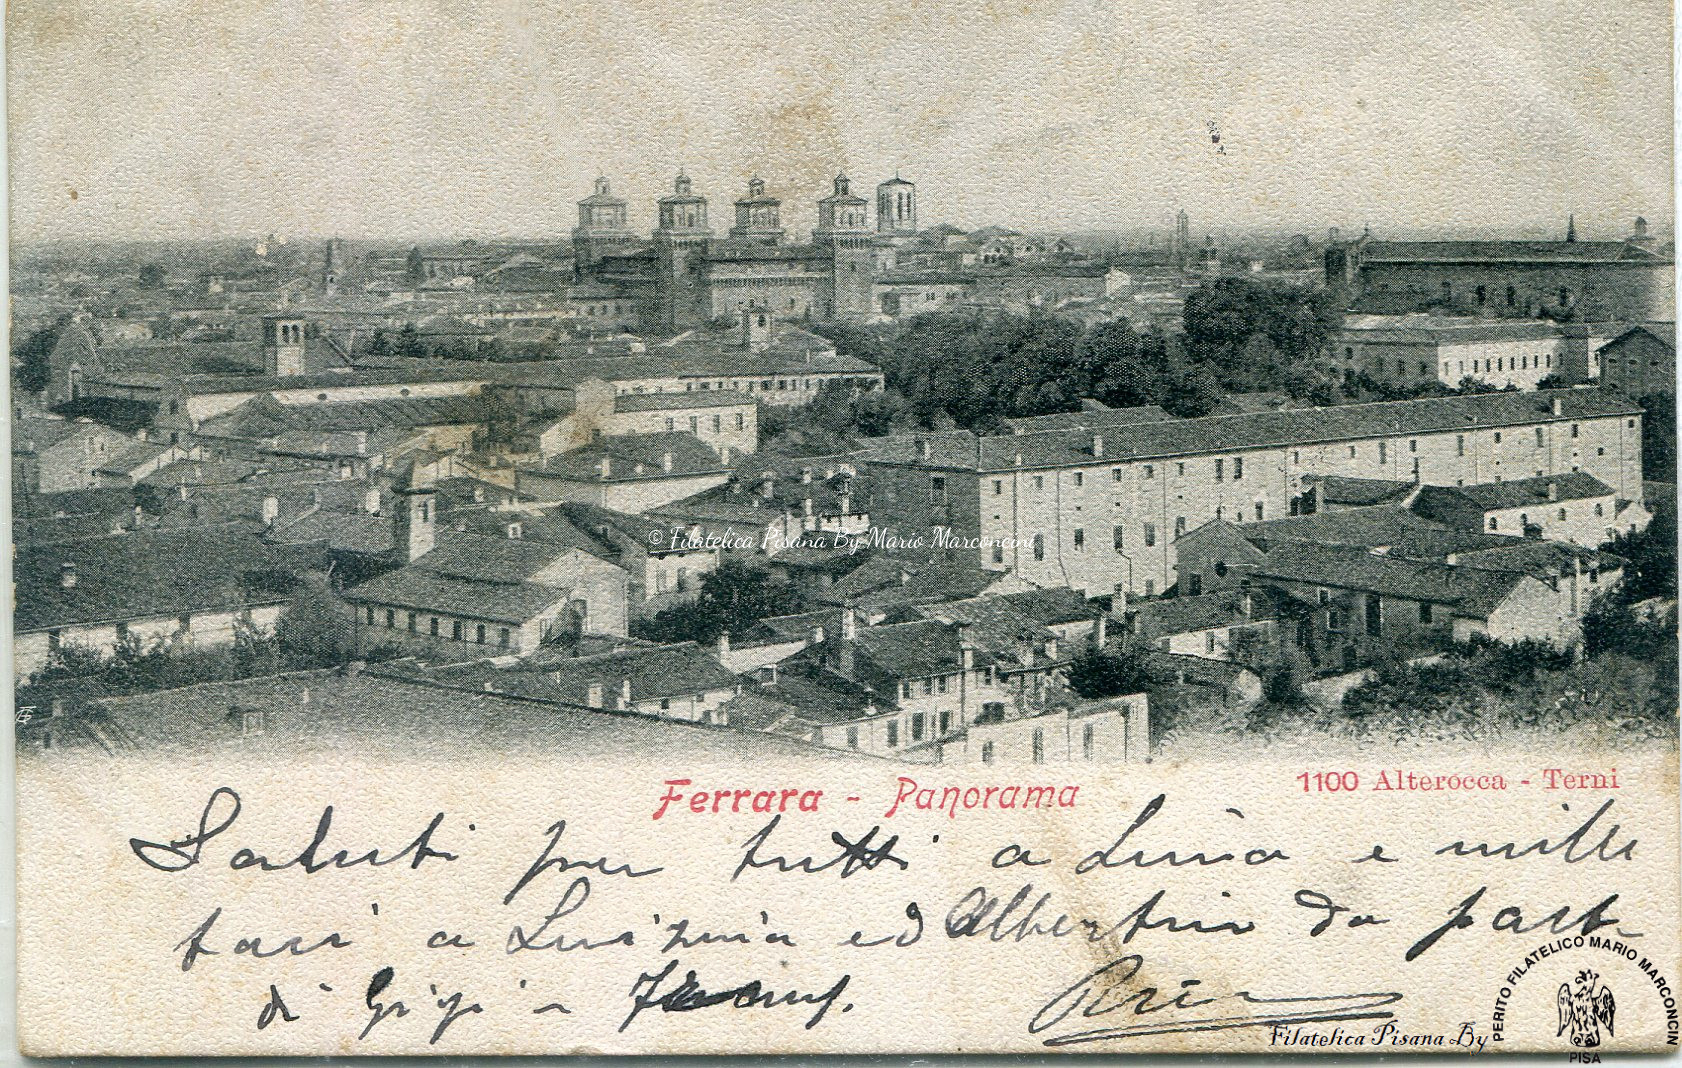 © Filatelica Pisana By Mario Marconcini
Ferrara - Panorama
1100 Alterocca - Terni
Saluti per tutti a Livia e mille
baci a Luisinia ed Albertin da parte
di Gigi
Filatelica Pisana By
PERITO FILATELICO MARIO MARCONCIN
PISA